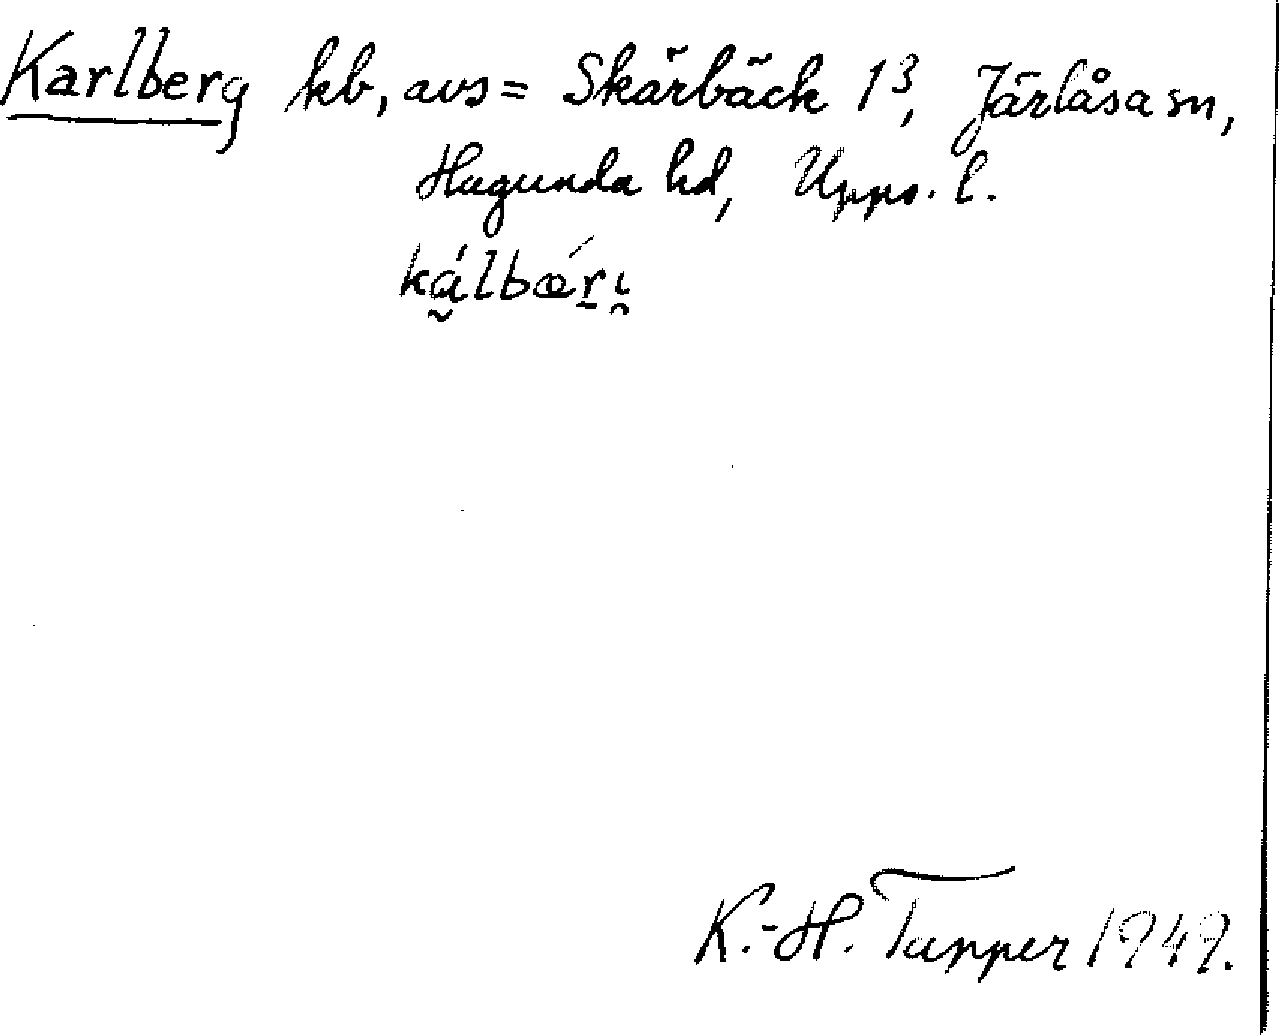 Karlberg hb, avs = Skärbäck 1³, Järlåsa sn,
Hagunda hd, Upps. l.
ká̰lbǽr̠ı̯
K.-H. Tapper 1949.